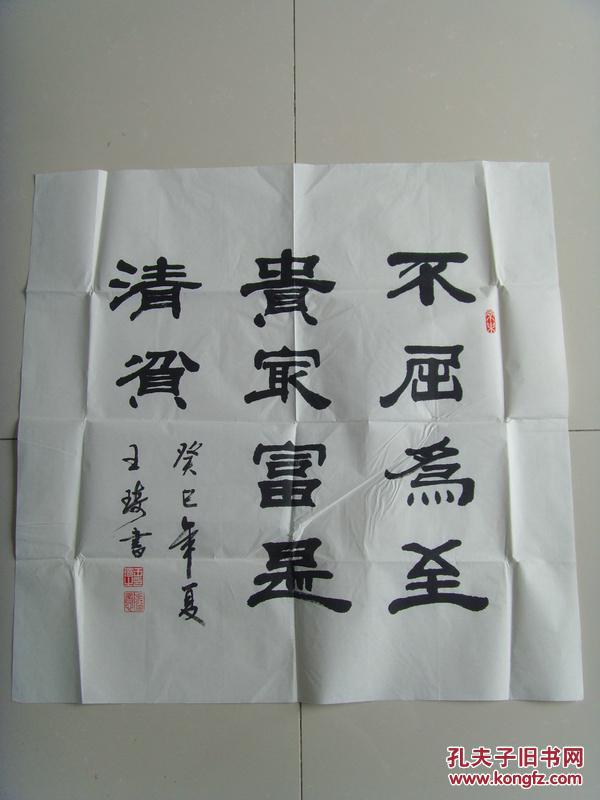 不屈為至
貴冣富是
清貧
癸巳年夏
王琦書
孔夫子旧书网
www.kongfz.com